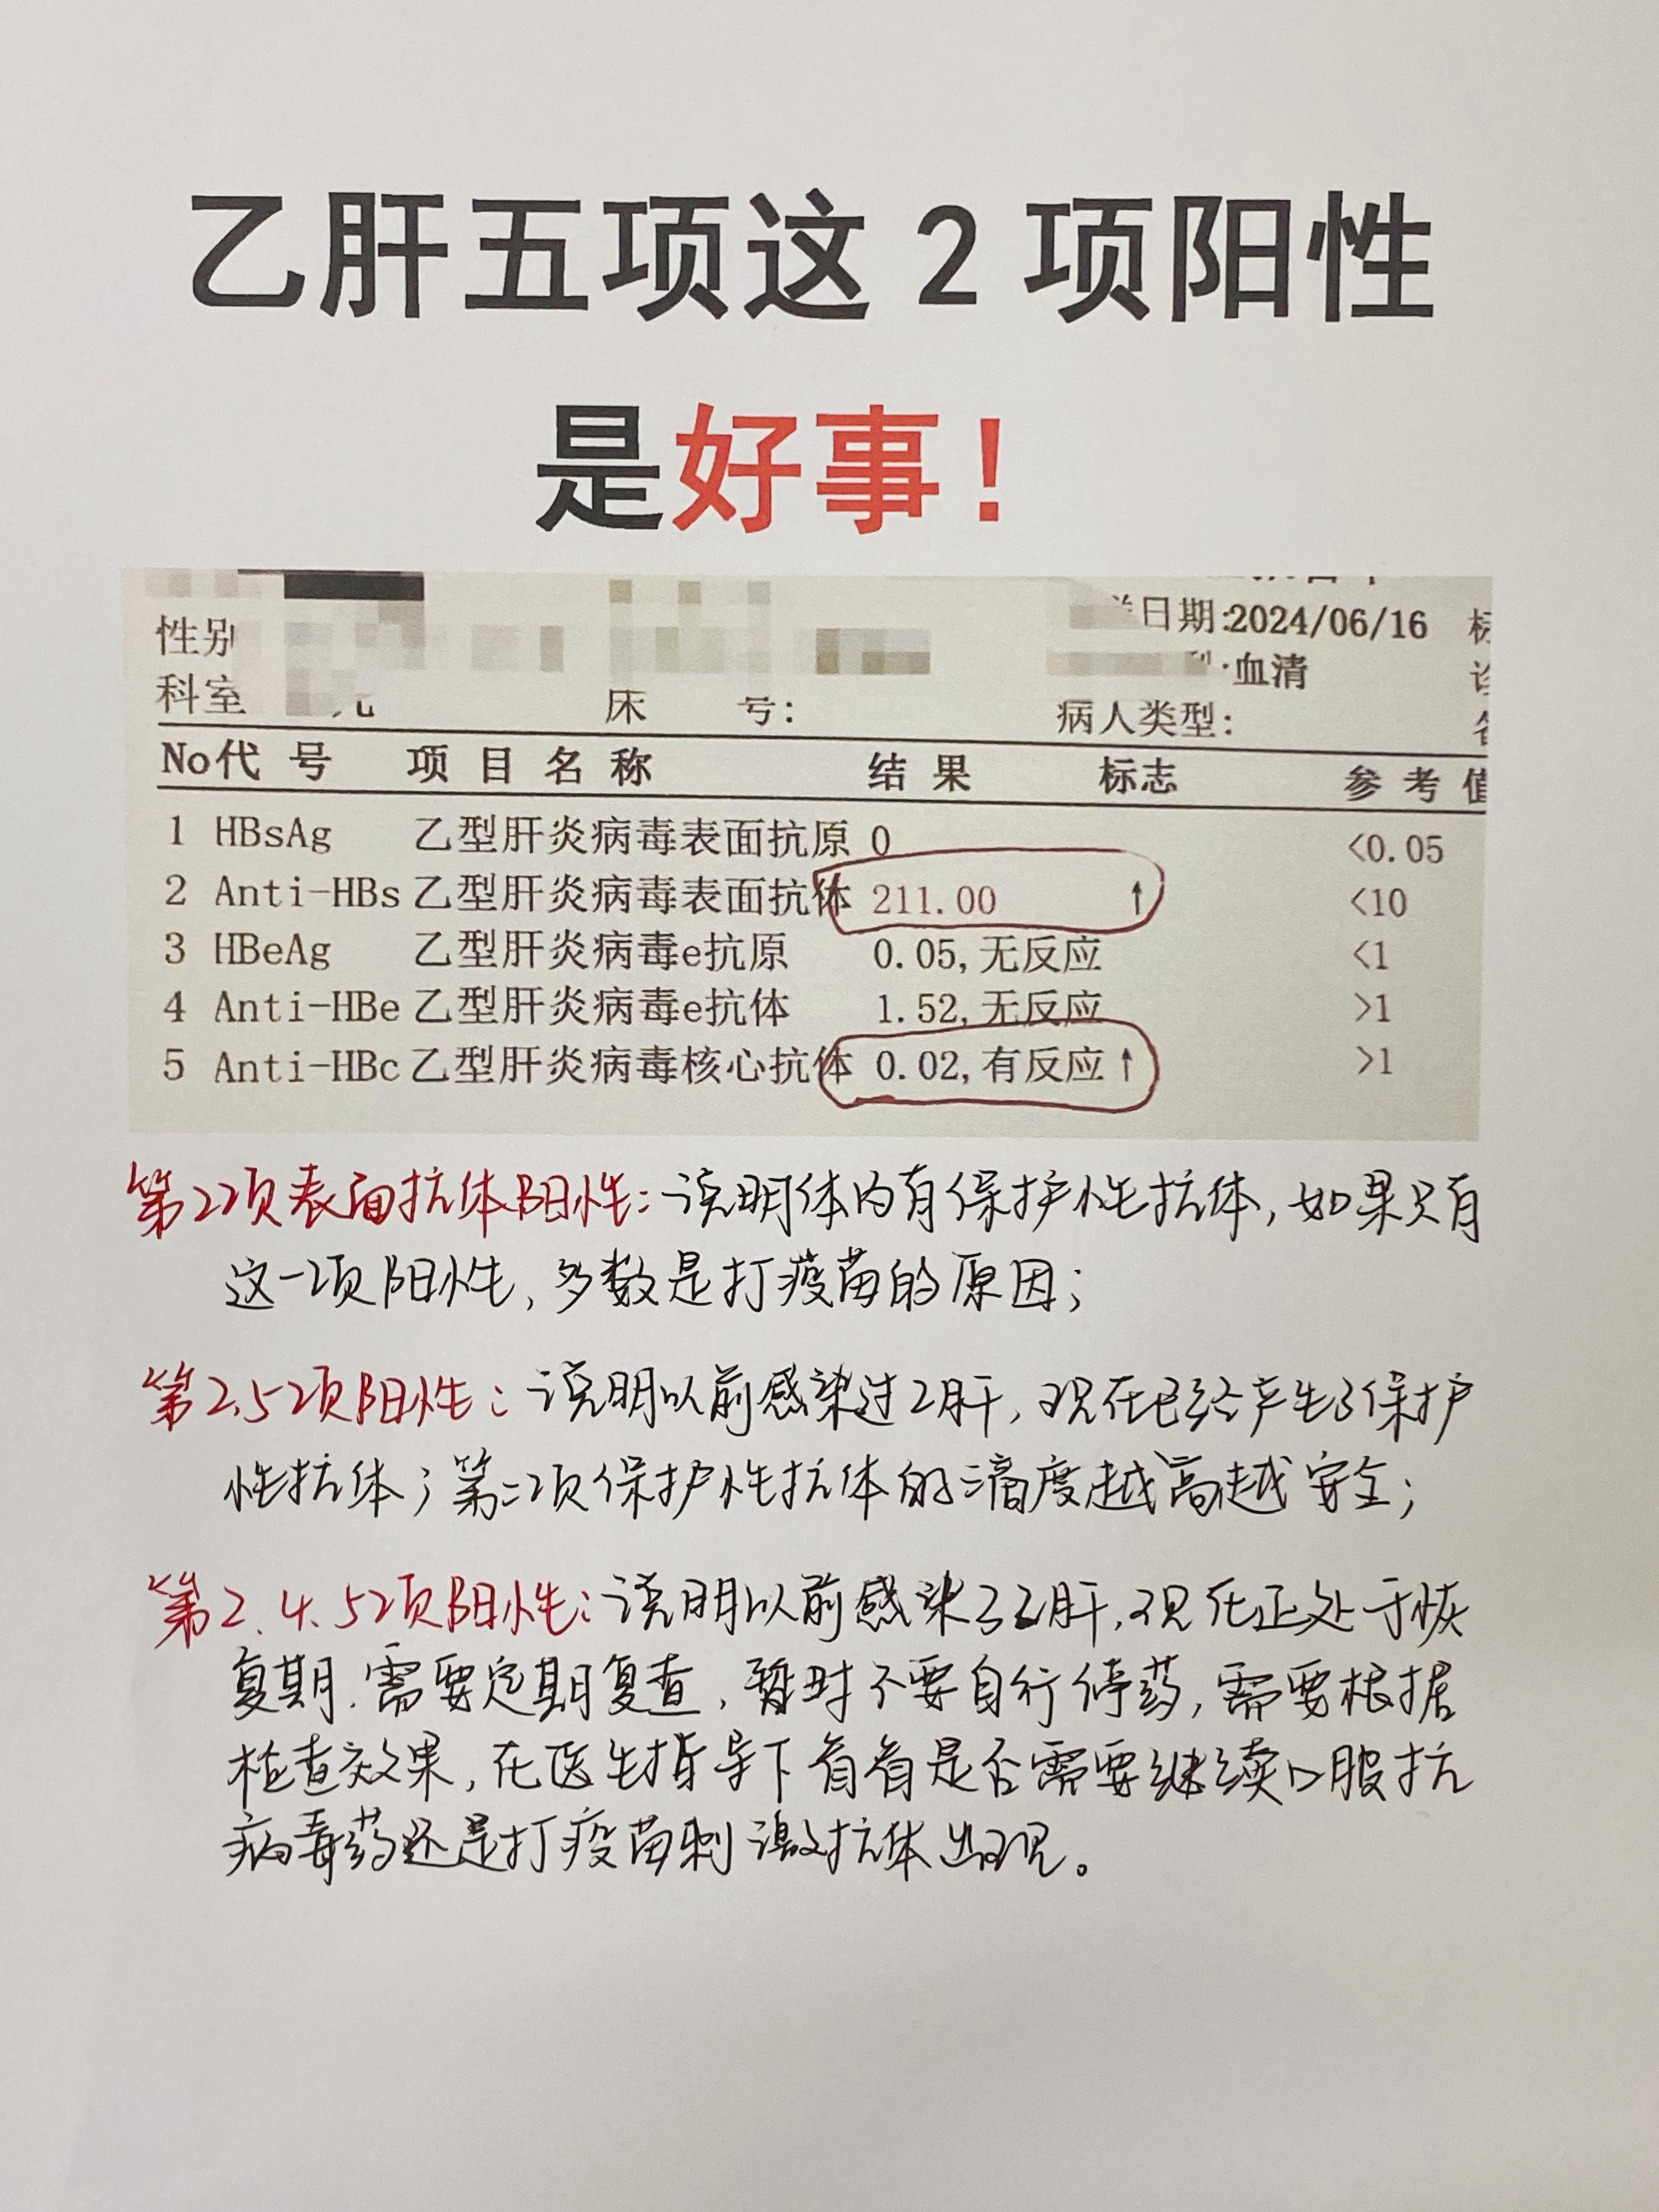 乙肝五项这2项阳性
是好事!
日期:2024/06/16
性别
:血清
科室
床 号:
病人类型:
No代 号 项 目 名 称 结 果 标志 参 考 值
1 HBsAg 乙型肝炎病毒表面抗原 0 <0.05
2 Anti-HBs 乙型肝炎病毒表面抗体 211.00 ↑ <10
3 HBeAg 乙型肝炎病毒e抗原 0.05,无反应 <1
4 Anti-HBe 乙型肝炎病毒e抗体 1.52,无反应 >1
5 Anti-HBc 乙型肝炎病毒核心抗体 0.02,有反应↑ >1
第2项表面抗体阳性:说明体内有保护性抗体,如果只有
这一项阳性,多数是打疫苗的原因;
第2.5项阳性:说明以前感染过乙肝,现在已经产生了保护
性抗体;第二项保护性抗体的滴度越高越安全;
第2.4.5项阳性:说明以前感染了乙肝,现在正处于恢
复期.需要定期复查,暂时不要自行停药,需要根据
检查效果,在医生指导下看看是否需要继续口服抗
病毒药还是打疫苗刺激抗体出现。